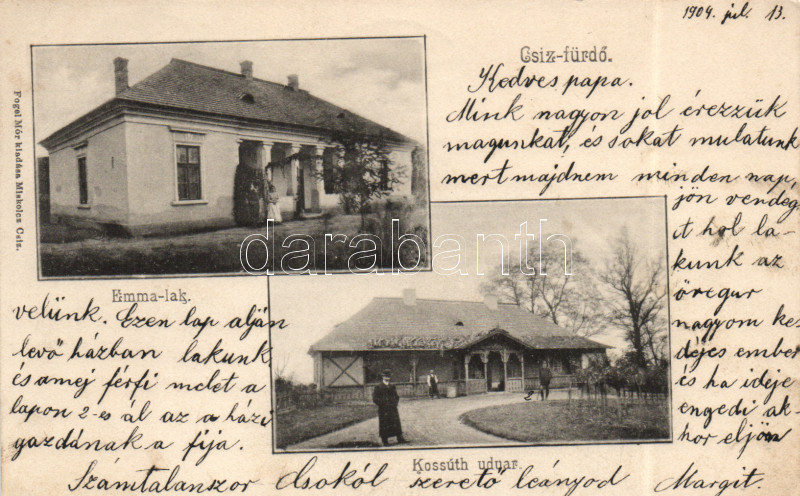 1904. jul. 13.
Csiz-fürdő.
Kedves papa.
Mink nagyon jol érezzük
magunkat, és sokat mulatunk
mert majdnem minden nap,
jön vendég
it hol la-
kunk az
öregur
nagyom ke-
déjes ember
és ha ideje
engedi ak-
kor eljön
Emma-lak.
velünk. Ezen lap alján
levő házban lakunk
és amej férfi melet a
lapon 2-es ál az a házi
gazdának a fija.
Kossúth udvar.
2
Számtalanszor Csokól szerető leányod Margit.
Fogel Mór kiadása Miskolcz Csíz.
darabanth